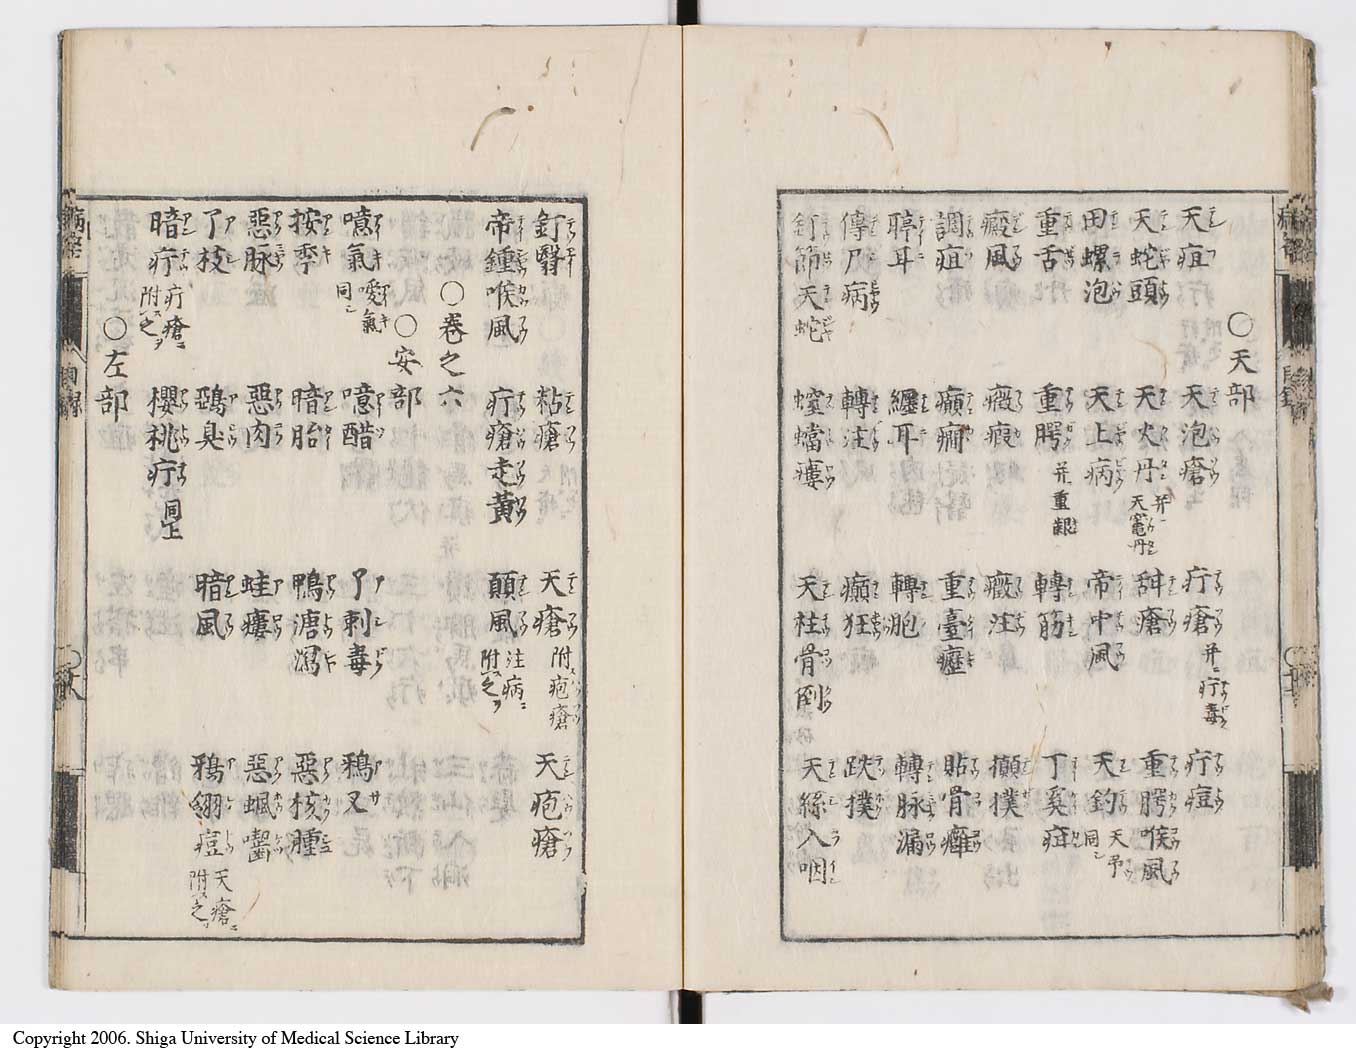 〇天部
天疽 天泡瘡 疔瘡 并ニ疔毒 疔痘
天蛇頭 天火丹 并ニ天竃丹 𦧇瘡 重腭喉風
田螺泡 天上病 帝中風 天釣 天吊同シ
重舌 重腭 并重齦 轉筋 丁奚疳
癜風 癜痕 癜注 攧撲
調疽 癲癇 重臺癧 貼骨癰
聤耳 纏耳 轉胞 轉脉漏
傳尸病 轉注 癲狂 跌撲
釘節天蛇 螲蟷瘻 天柱骨倒 天絲入咽
釘翳 粘瘡 天瘡 附疱瘡 天疱瘡
帝鍾喉風 疔瘡走黃 顛風 注病ニ附ス之ヲ
〇卷之六
〇安部
噫氣 噯氣同シ 噫醋 了刺毒 鴉叉
按季 暗胎 鴨溏瀉 惡核腫
惡脉 惡肉 蛙瘻 惡蝨嚙
了枝 鵶臭 暗風 鴉䎃痘 天瘡ニ附ス之ヲ
暗疔 疔瘡ニ附ス之ヲ 櫻桃疔 同上
〇左部
Copyright 2006. Shiga University of Medical Science Library